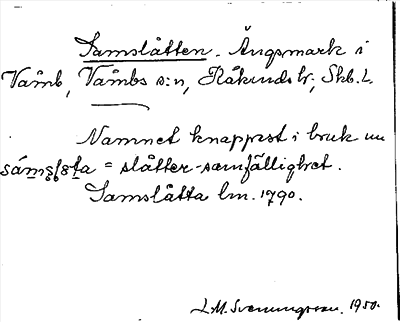 Samslåtten. Ängsmark i
Våmb, Våmbs s:n, Kåkinds hr, Skb. L.
Namnet knappast i bruk nu
= slåtter-samfällighet.
Samslåtta lm. 1790.
L.M. Svenungsson. 1950.